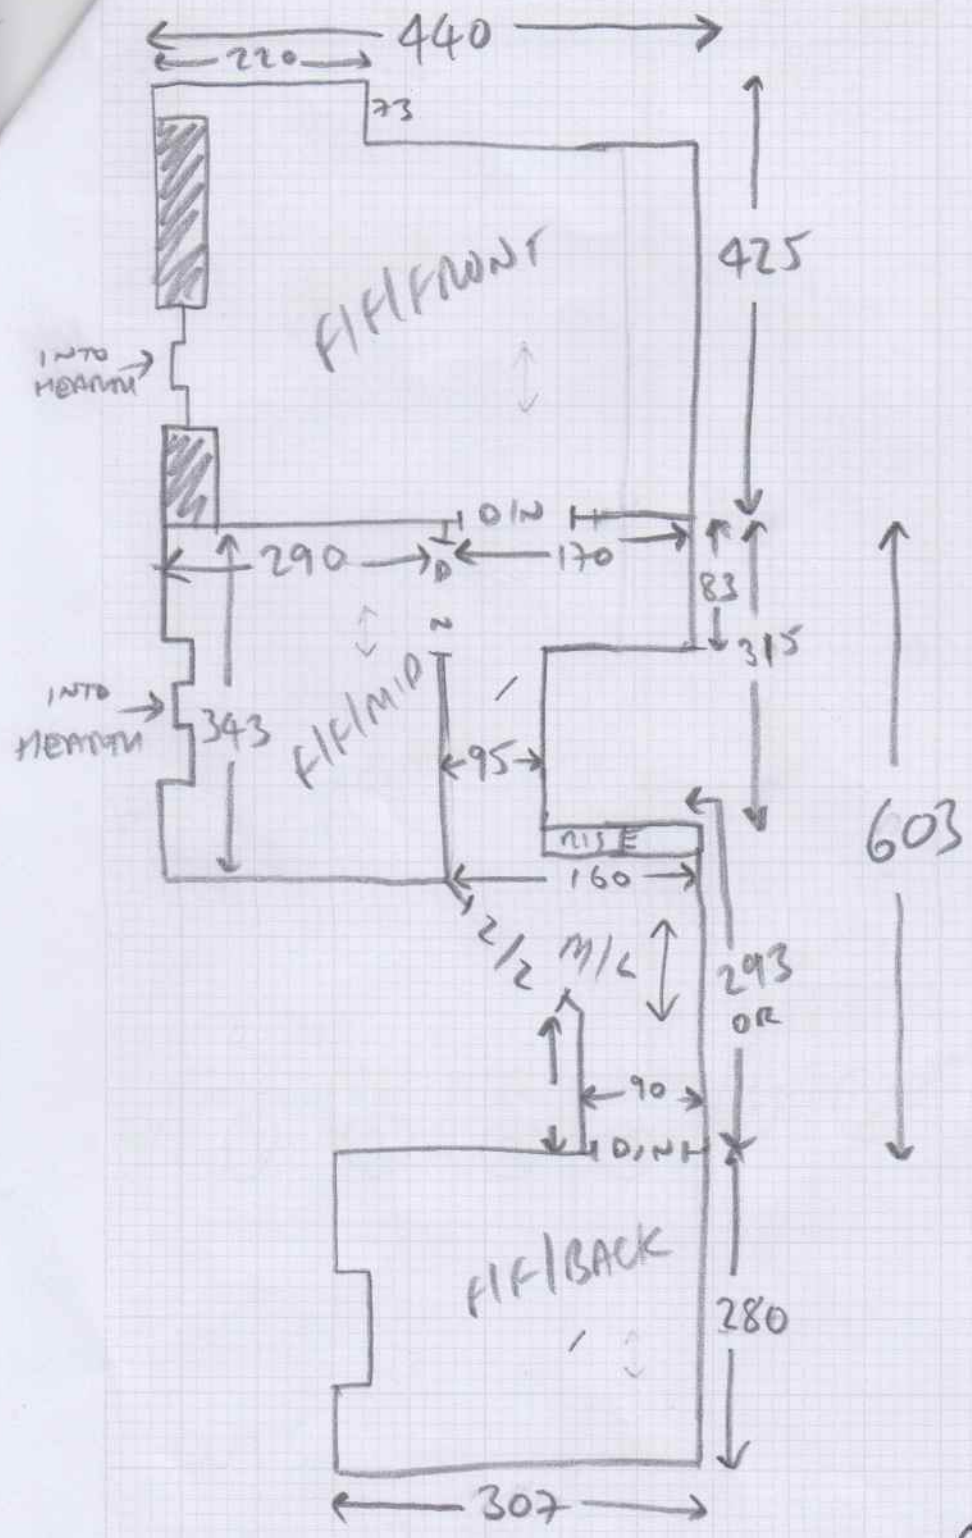 440
220
73
425
F/F/FRONT
INTO
HEARTH
D/N
290
170
D
N
83
315
INTO
HEARTH
343
F/F/MID
95
603
RIS
160
2/2
M/L
293
OR
90
D/N
F/F/BACK
280
307